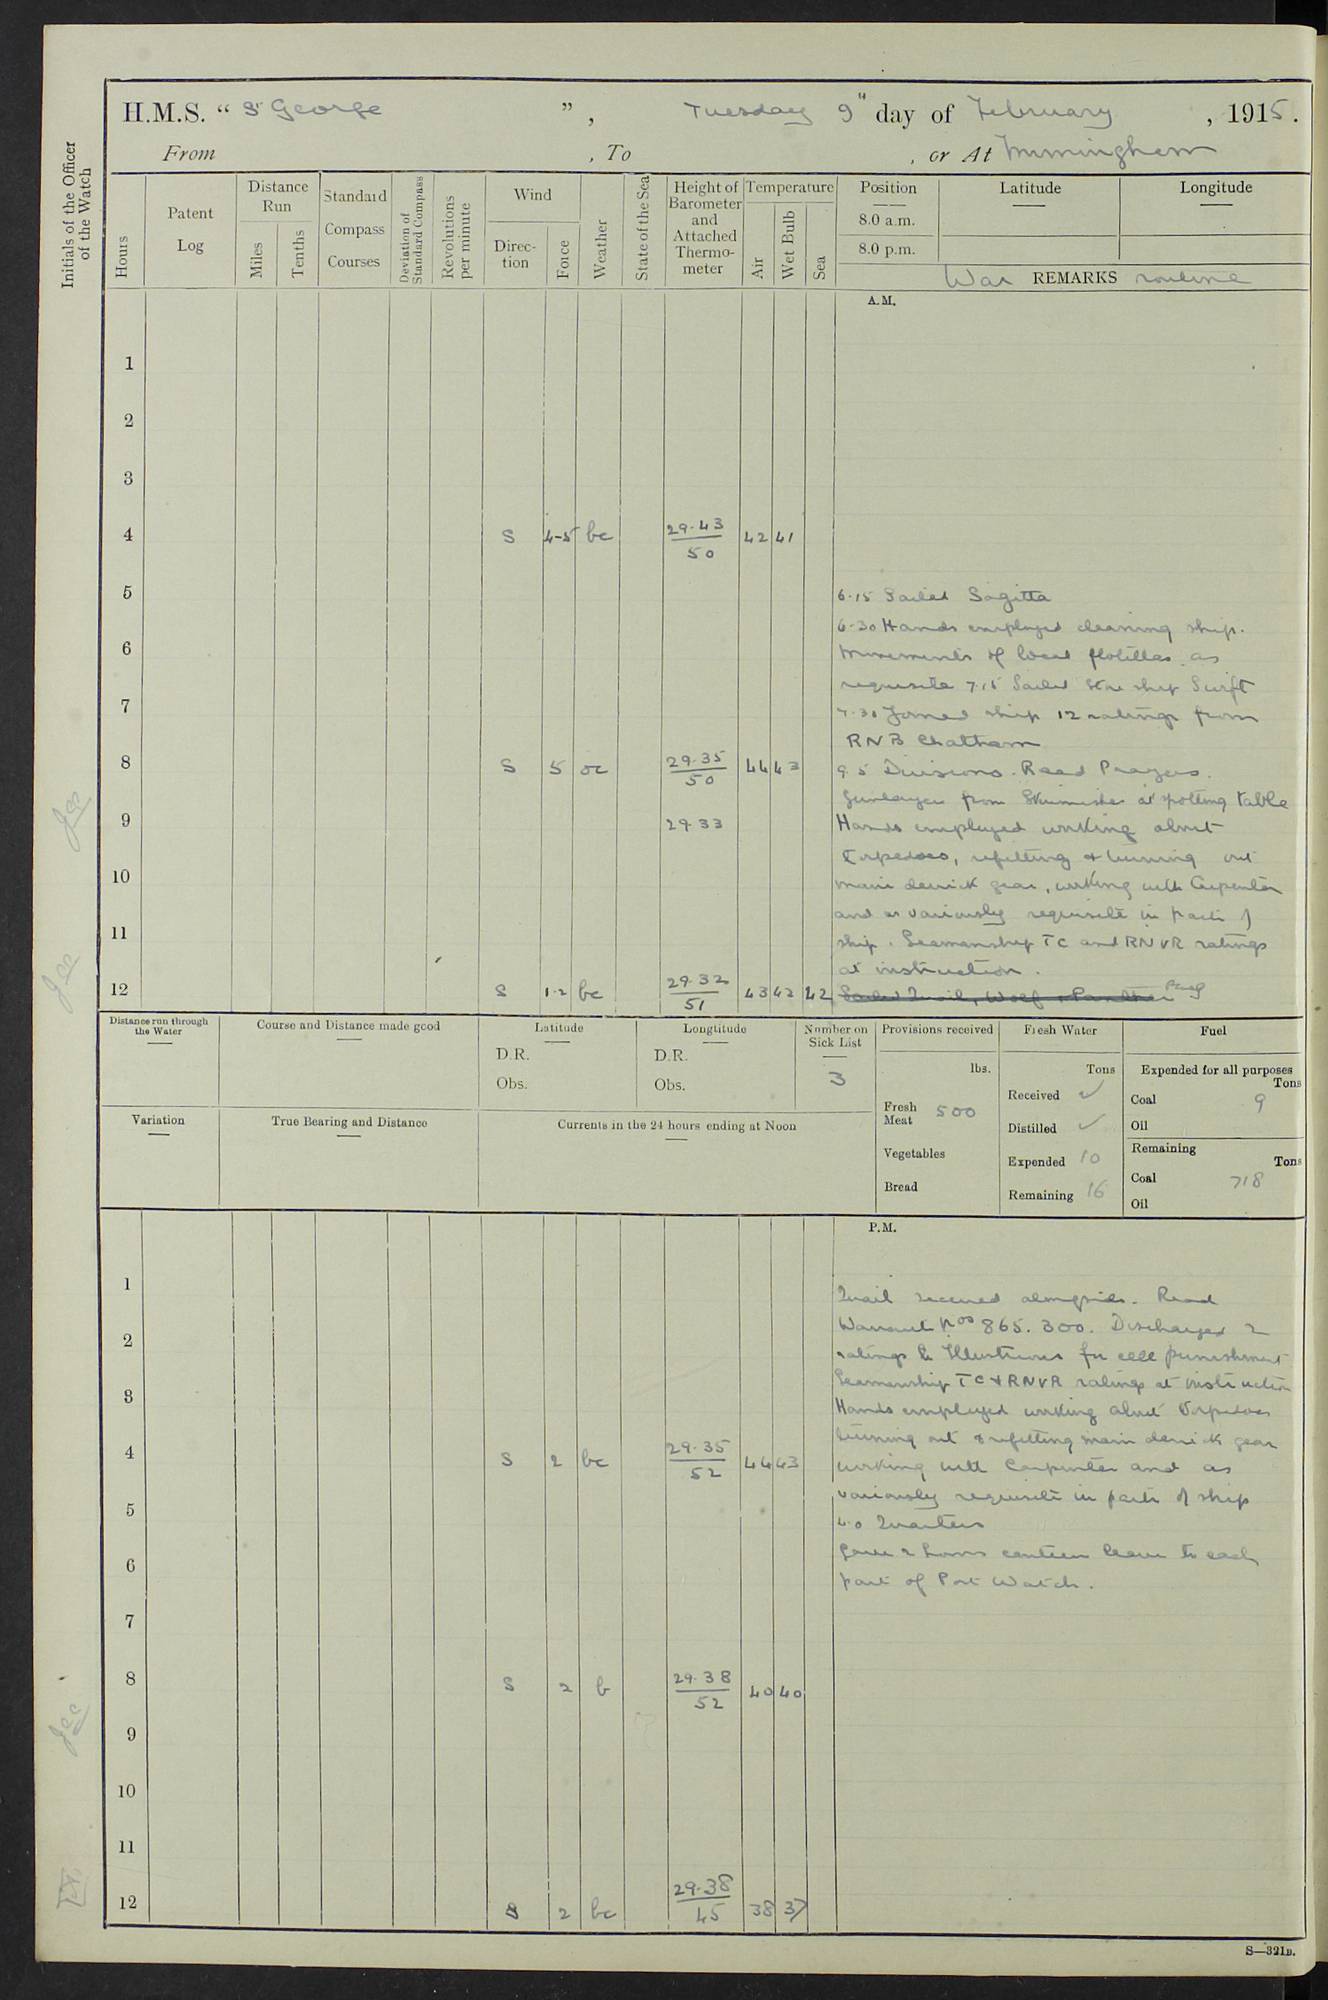 H.M.S. “ St George ”, Tuesday 9th day of February, 1915.
From , To , or At Immingham
Initials of the Officer of the Watch
Hours
Patent Log
Distance Run
Miles
Tenths
Standard Compass Courses
Deviation of Standard Compass
Revolutions per minute
Wind
Direc-tion
Force
Weather
State of the Sea
Height of Barometer and Attached Thermo-meter
Temperature
Air
Wet Bulb
Sea
Position
8.0 a.m.
8.0 p.m.
Latitude
Longitude
War REMARKS routine
A.M.
1
2
3
4 S 4-5 bc 29.43 50 42 41
5
6
7
8 S 5 oc 29.35 50 44 43
9 29.33
10
11
12 S 1-2 bc 29.32 51 43 42 42
6.15 Sailed Sagitta
6.30 Hands employed cleaning ship.
Movements of local flotillas as
requisite 7.15 Sailed Store ship Swift
7.30 Joined ship 12 ratings from
RNB Chatham
9.5 Divisions. Read Prayers.
Gunlayers from Skirmisher at spotting table
Hands employed working about
torpedoes, refitting & turning out
main derrick gear, working with Carpenter
and as variously requisite in parts of
ship. Seamanship TC and RNVR ratings
at instruction.
Sailed Quail, Wolf & Panther
Distance run through the Water
Course and Distance made good
Latitude
D.R.
Obs.
Longtitude
D.R.
Obs.
Number on Sick List
3
Provisions received
lbs.
Fresh Meat 500
Vegetables
Bread
Fresh Water
Tons
Received ✓
Distilled ✓
Expended 10
Remaining 16
Fuel
Expended for all purposes
Tons
Coal 9
Oil
Remaining
Tons
Coal 718
Oil
Variation
True Bearing and Distance
Currents in the 24 hours ending at Noon
P.M.
1
2
3
4 S 2 bc 29.35 52 44 43
5
6
7
8 S 2 b 29.38 52 40 40
9
10
11
12 S 2 bc 29.38 45 38 37
Quail secured alongside. Read
Warrant Nos 865. 300. Discharged 2
ratings to Illustrious for cell punishment
Seamanship TC & RNVR ratings at instruction
Hands employed working about torpedoes
turning out & refitting main derrick gear
working with Carpenter and as
variously requisite in parts of ship
4.0 Quarters
Gave 2 hours canteen leave to each
part of Port Watch.
S—321B.